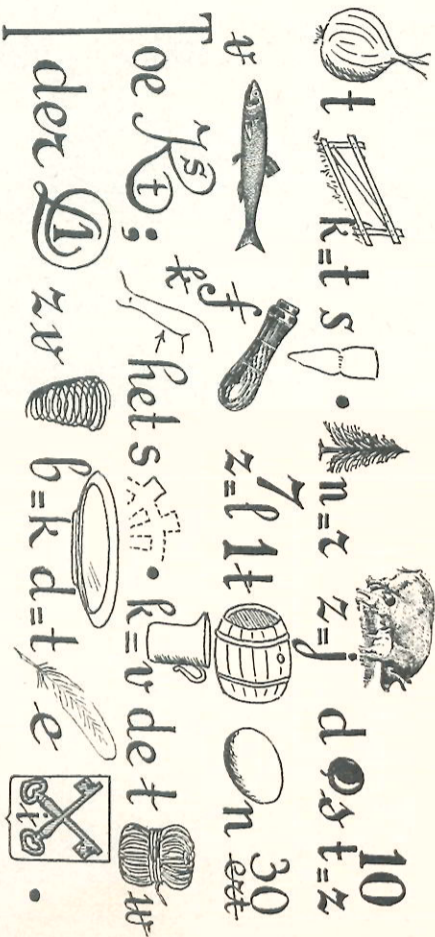 t k=t s . n=r z=j d s t=z 10
v f k z=l 7 1 t n 30 ert
Toe K s t ; het s . k=v de t w
der D 1 zv b=k d=t e i .